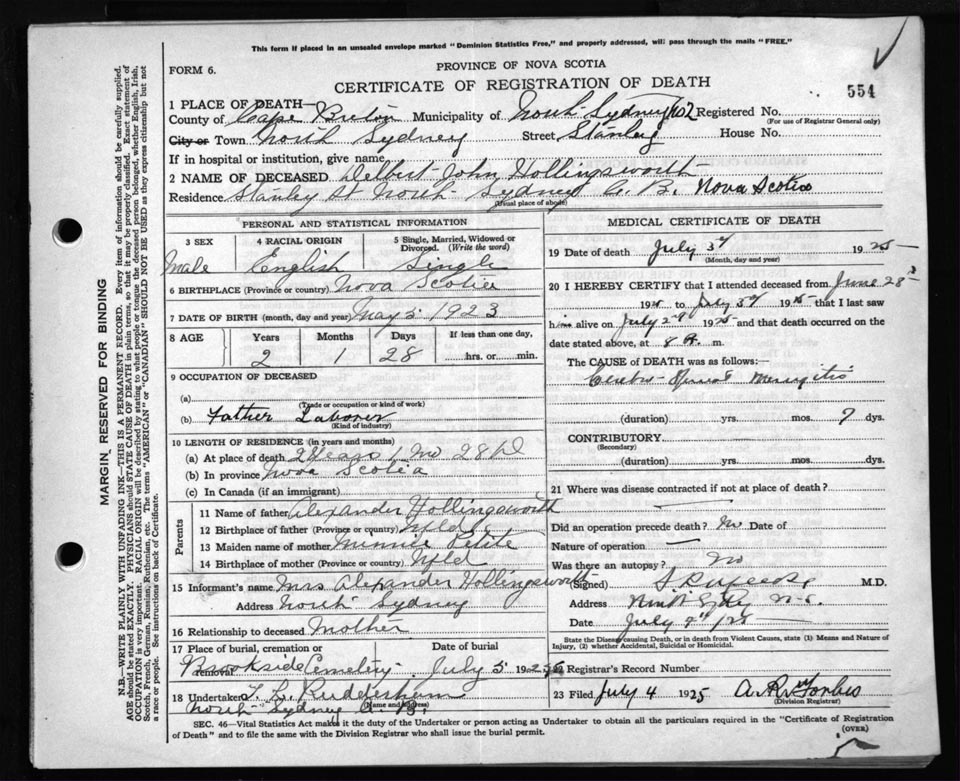 This form if placed in an unsealed envelope marked "Dominion Statistics Free," and properly addressed, will pass through the mails "FREE."
FORM 6.
PROVINCE OF NOVA SCOTIA
CERTIFICATE OF REGISTRATION OF DEATH
554
1 PLACE OF DEATH—
County of Cape Breton Municipality of North Sydney Registered No.
(For use of Registrar General only)
City or Town North Sydney Street, Stanley House No.
If in hospital or institution, give name
2 NAME OF DECEASED Delbert John Hollingsworth
Residence Stanley St North Sydney C. B. Nova Scotia
(Usual place of abode)
PERSONAL AND STATISTICAL INFORMATION
3 SEX 4 RACIAL ORIGIN 5 Single, Married, Widowed or Divorced. (Write the word)
Male English Single
6 BIRTHPLACE (Province or country) Nova Scotia
7 DATE OF BIRTH (month, day and year) May 5 1923
8 AGE Years Months Days If less than one day,
2 1 28 hrs. or min.
9 OCCUPATION OF DECEASED
(a)
(Trade or occupation or kind of work)
(b) Father Laborer
(Kind of industry)
10 LENGTH OF RESIDENCE (in years and months)
(a) At place of death 2 Years 1 Mo 28 d
(b) In province Nova Scotia
(c) In Canada (if an immigrant)
Parents
11 Name of father Alexander Hollingsworth
12 Birthplace of father (Province or country) Nfld
13 Maiden name of mother Minnie Petite
14 Birthplace of mother (Province or country) Nfld
15 Informant's name Mrs Alexander Hollingsworth
Address North Sydney
16 Relationship to deceased Mother
17 Place of burial, cremation or removal Date of burial
Brookside Cemetery July 5 1925
18 Undertaker
North Sydney C. B.
(Name and address)
MEDICAL CERTIFICATE OF DEATH
19 Date of death July 3rd 1925
(Month, day and year)
20 I HEREBY CERTIFY that I attended deceased from June 28
1925 to July 1925 that I last saw
him alive on July 2nd 1925 and that death occurred on
date stated above, at 8 m.
The CAUSE of DEATH was as follows:—
Cerebro-Spinal Meningitis
(duration) yrs. mos. 7 dys.
CONTRIBUTORY
(Secondary)
(duration) yrs. mos. dys.
21 Where was disease contracted if not at place of death?
Did an operation precede death? No Date of
Nature of operation —
Was there an autopsy? No
(Signed) M.D.
Address North Sydney N.S.
Date July
State the Disease causing Death, or in death from Violent Causes, state (1) Means and Nature of Injury, (2) whether Accidental, Suicidal or Homicidal.
22 Registrar's Record Number
23 Filed July 4 1925 Forbes
(Division Registrar)
SEC. 46—Vital Statistics Act makes it the duty of the Undertaker or person acting as Undertaker to obtain all the particulars required in the "Certificate of Registration of Death" and to file the same with the Division Registrar who shall issue the burial permit.
(OVER)
MARGIN RESERVED FOR BINDING
N.B.—WRITE PLAINLY WITH UNFADING INK—THIS IS A PERMANENT RECORD. Every item of information should be carefully supplied.
AGE should be stated EXACTLY. PHYSICIANS should STATE CAUSE OF DEATH in plain terms, so that it may be properly classified. Exact statement of
OCCUPATION is very important. RACIAL ORIGIN will be described by stating to what people or tongue the deceased person belonged, whether English, Irish,
Scotch, French, German, Russian, Ruthenian, etc. The terms "AMERICAN" or "CANADIAN" SHOULD NOT BE USED as they express citizenship but not
a race or people. See instructions on back of Certificate.